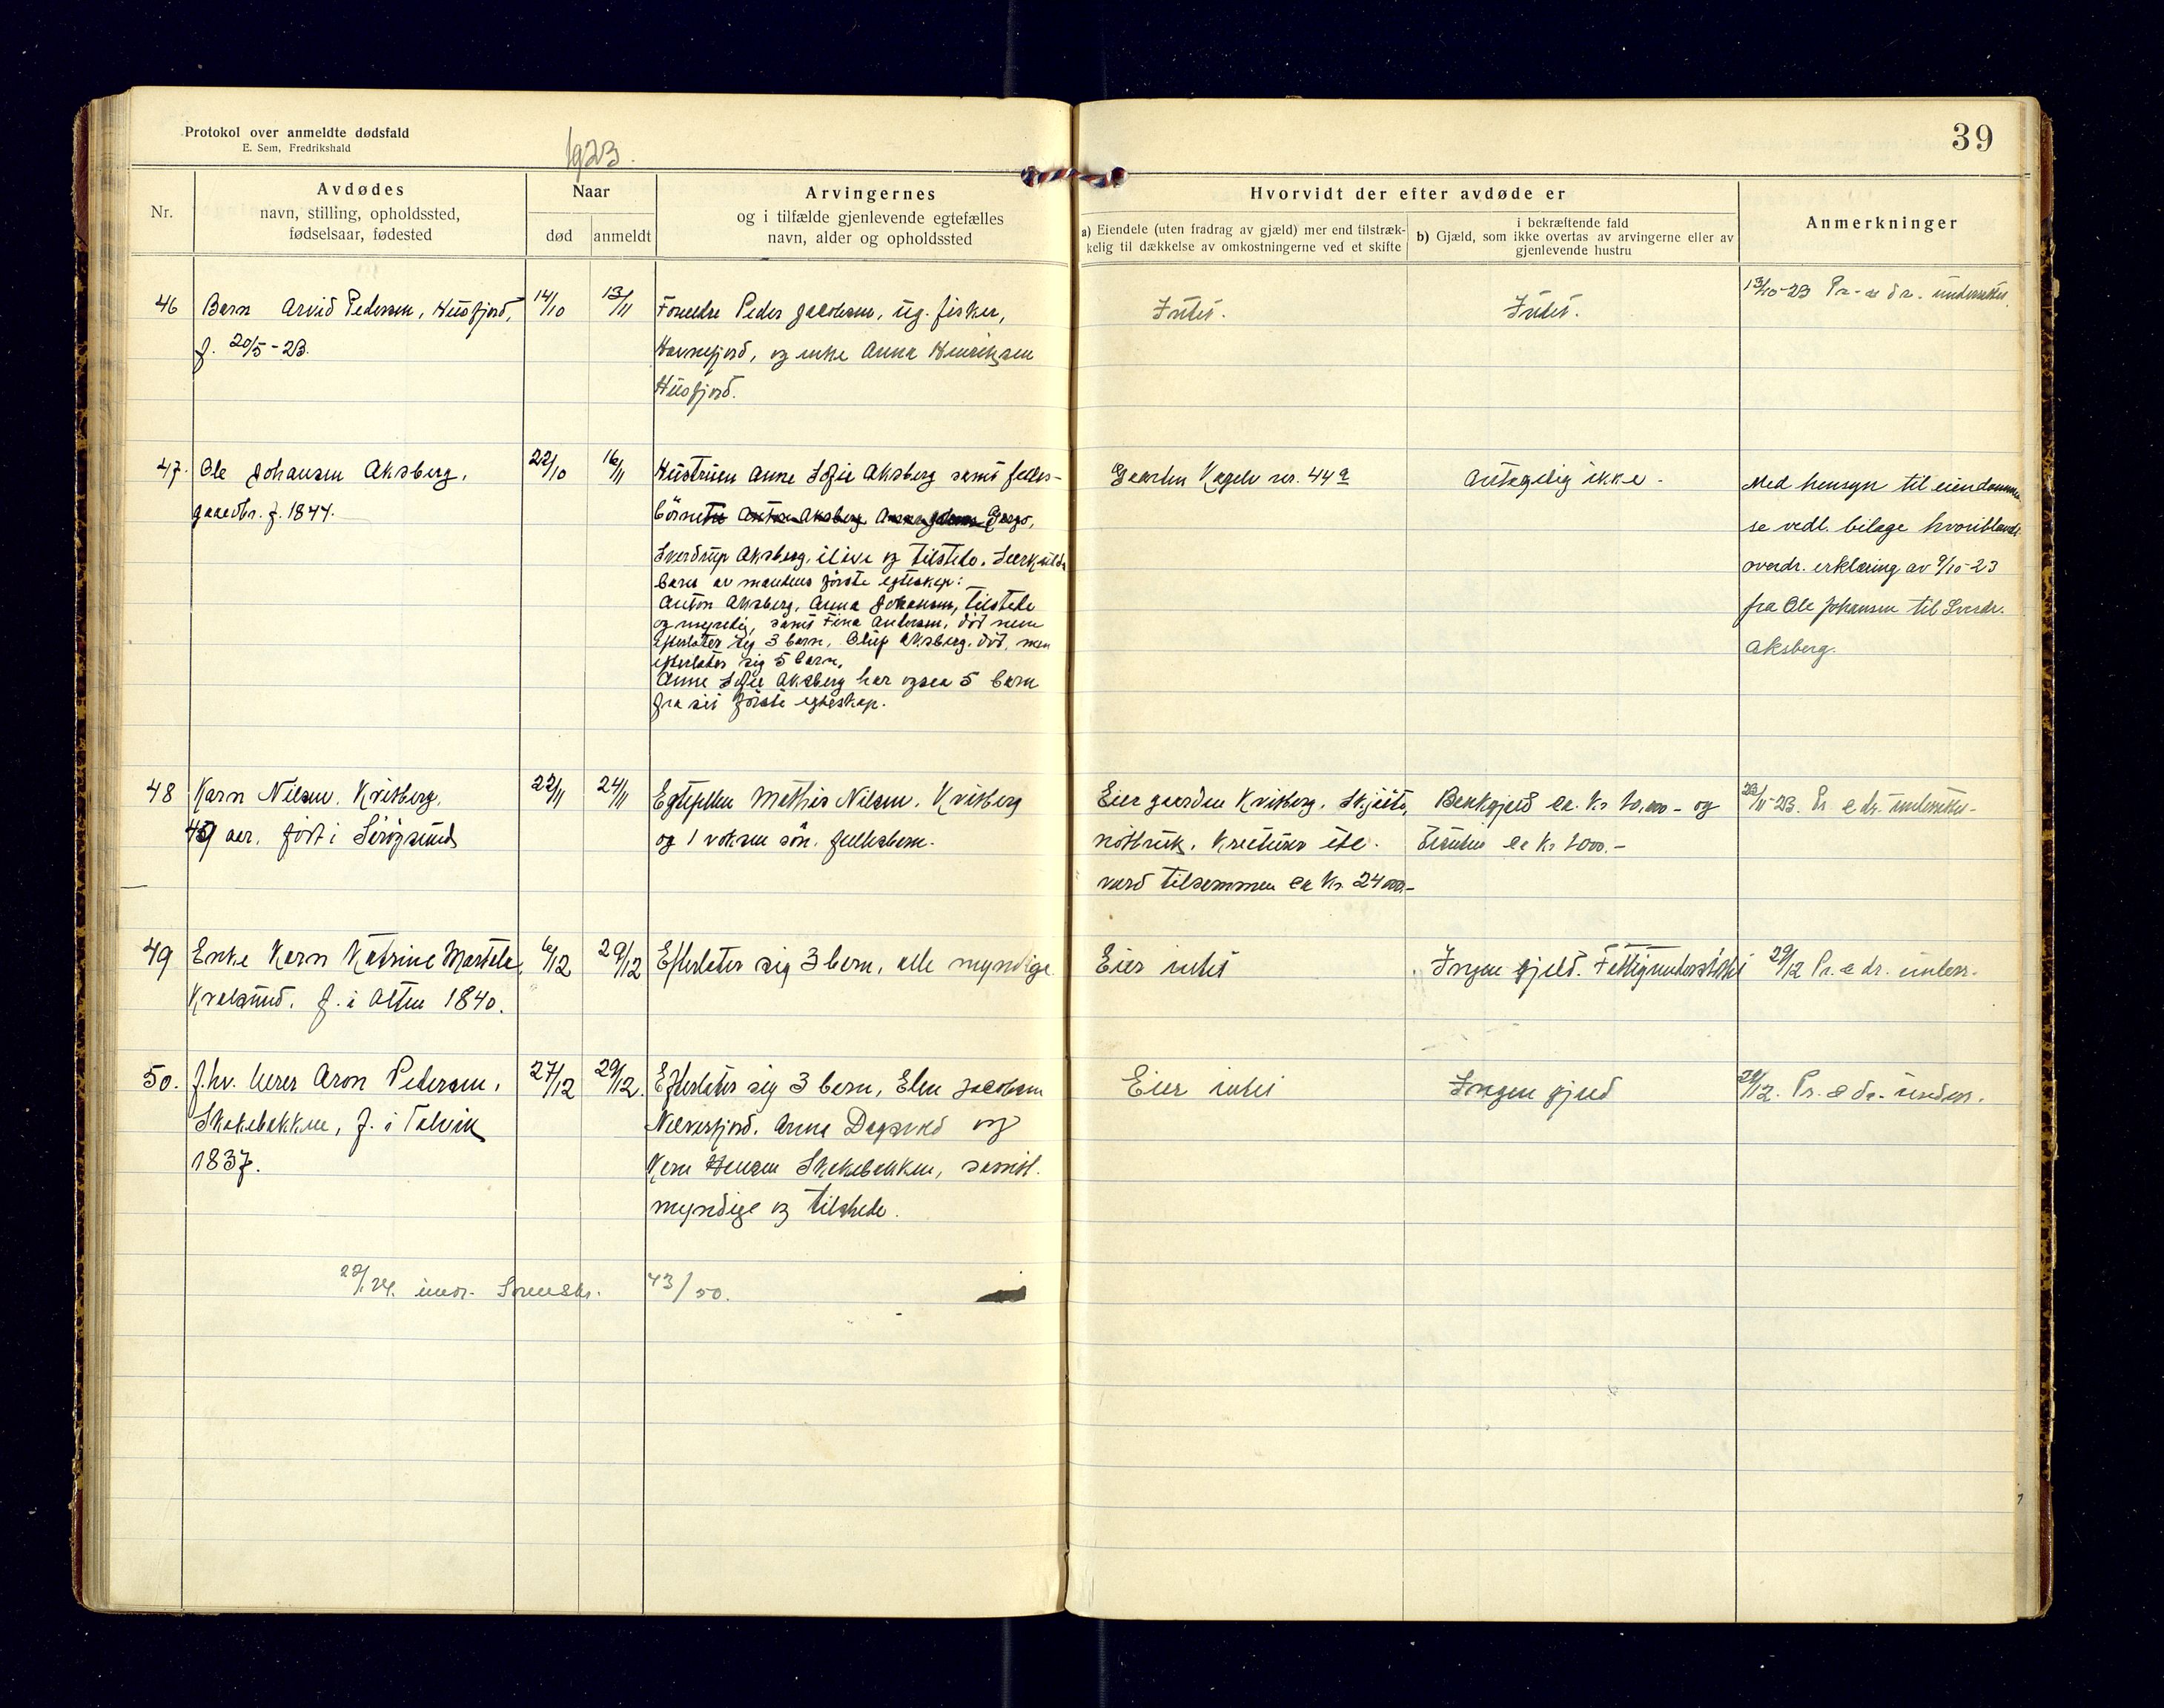 Protokol over anmeldte dødsfald
E. Sem, Fredrikshald
1923.
39
Nr.
Avdødes
navn, stilling, opholdssted,
fødselsaar, fødested
Naar
død
anmeldt
Arvingernes
og i tilfælde gjenlevende egtefælles
navn, alder og opholdssted
Hvorvidt der efter avdøde er
a) Eiendele (uten fradrag av gjæld) mer end tilstræk-
kelig til dækkelse av omkostningerne ved et skifte
i bekræftende fald
b) Gjæld, som ikke overtas av arvingerne eller av
gjenlevende hustru
Anmerkninger
46
Barn Arvid Pedersen, Husfjord,
f. 20/5-23.
14/10
13/11
Foreldre Peder Jacobsen, ug. fisker,
og enke Anna Henriksen
Husfjord.
Intet.
Intet.
Pr. e dr. underrettet.
47.
Ole Johansen Aksberg,
gaardbr. f. 1844.
22/10
16/11
Hustruen Anne Sofie Aksberg samt felles-
börnene Anton Aksberg Anna Johansen
Sverdrup Aksberg, ilive og tilstede. Særkulds
barn av mandens förste egteskap:
Anton Aksberg, Anna Johansen, tilstede
og myndig, samt Fina Andersen, död men
efterlater sig 3 barn, Oluf Aksberg, död, men
efterlater sig 5 barn.
Anne Sofie Aksberg har ogsaa 5 barn
fra sit förste egteskap.
Gaarden nr. 44 a
Antagelig ikke.
Med hensyn til eiendommen
se vedl. bilage hvoriblandt
overdr. erklæring av 9/10-23
fra Ole Johansen til Sverdr.
Aksberg.
48
Karn Nilsen, Kvitberg,
49 aar, födt i Sörøysund
22/11
24/11
Egtefellen Mathis Nilsen, Kvitberg
og 1 voksen sön, fellesbarn.
Eier gaarden Kvitberg, Skjöite,
notbruk, Kreaturer etc.
verd tilsammen ca Kr. 24000.-
Bankgjeld ca. Kr og
desuten ca Kr
Pr. e dr. underrettet.
49
Enke Karn Katrine
Kvalsund. f. i Alten 1840.
6/12
29/12
Efterlater sig 3 barn, alle myndige
Eier intet
Ingen gjeld. Fattigunderstöttet
29/12 Pr. e dr. underr.
50.
f.hv. lærer Aron Pedersen,
Skakebakken, f. i Talvik
1837.
27/12
29/12.
Efterlater sig 3 barn, Elen Jacobsen
Anna Dagsvold og
Karn Hansen Skakebakken, samtl.
myndige og tilstede.
Eier intet
Ingen gjeld
29/12. Pr. e dr. underr.
22/1 24. undr. Sorenskr. 43/50.